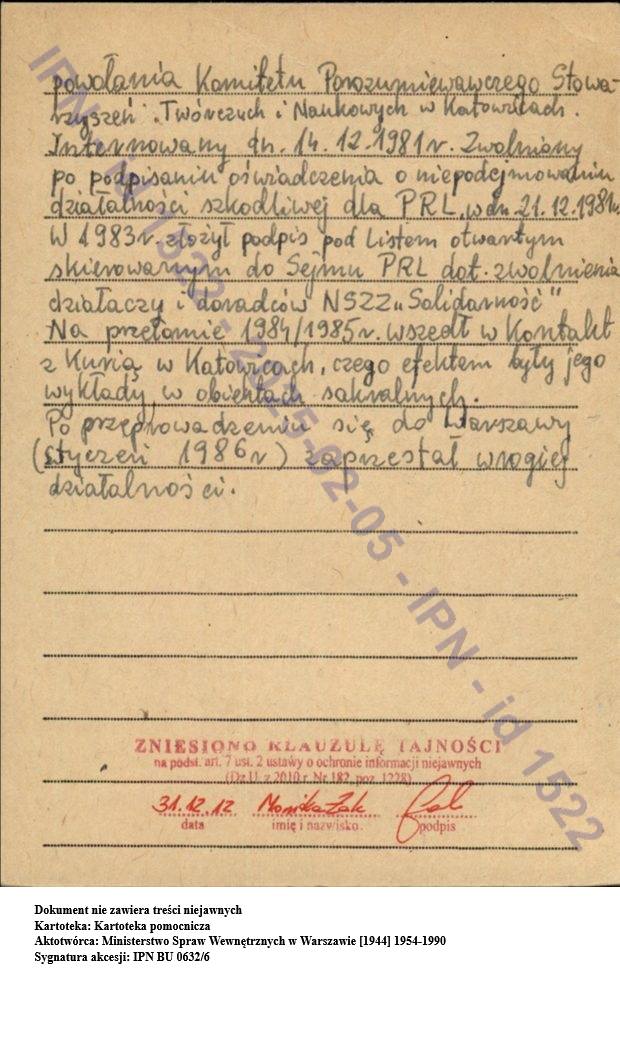 powołania Komitetu Porozumiewawczego Stowa-
rzyszeń Twórczych i Naukowych w Katowicach.
Internowany dn. 14.12.1981r. Zwolniany
po podpisaniu oświadczenia o niepodejmowaniu
działalności szkodliwej dla PRL w dn. 21.12.1981r.
W 1983r. złożył podpis pod Listem otwartym
skierowanym do Sejmu PRL dot. zwolnienia
działaczy i doradców NSZZ „Solidarność"
Na przełomie 1984/1985r. wszedł w kontakt
z Kurią w Katowicach, czego efektem były jego
wykłady w obiektach sakralnych.
Po przeprowadzeniu się do Warszawy
(styczeń 1986r) zaprzestał wrogiej
działalności.
IPN - id 1522 - 2025-02-05 - IPN - id 1522
ZNIESIONO KLAUZULĘ TAJNOŚCI
na podst. art. 7 ust. 2 ustawy o ochronie informacji niejawnych
(Dz.U. z 2010 r. Nr 182, poz. 1228)
31.12.12 Monika Żak
data imię i nazwisko podpis
Dokument nie zawiera treści niejawnych
Kartoteka: Kartoteka pomocnicza
Aktotwórca: Ministerstwo Spraw Wewnętrznych w Warszawie [1944] 1954-1990
Sygnatura akcesji: IPN BU 0632/6